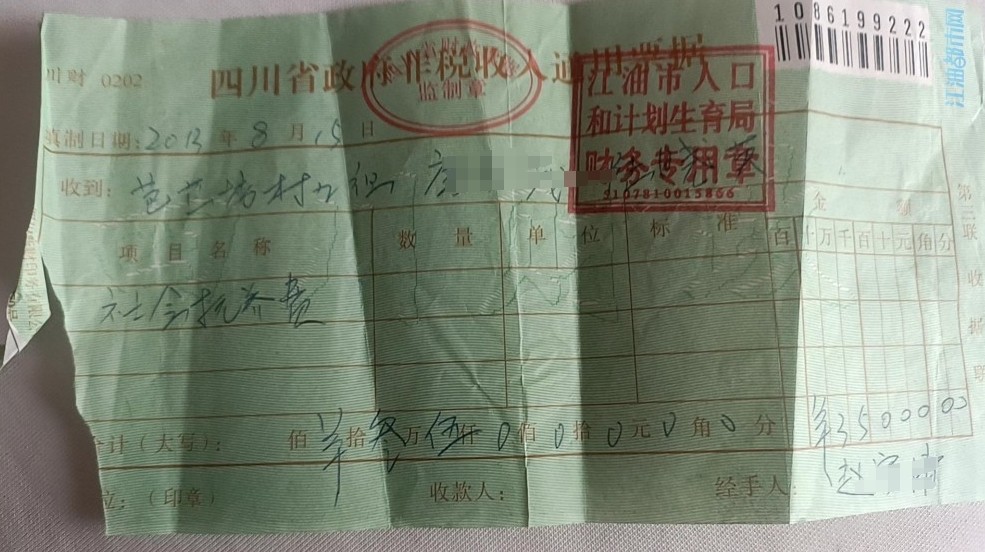 1086199222
江油都市网
川财 0202
四川省政府非税收入通用票据
监制章
江油市人口
和计划生育局
财务专用章
5107810015866
填制日期: 2013 年 8 月 15 日
收到: 村 组
金 额
项 目 名 称 数 量 单 位 标 准 百 十 万 千 百 十 元 角 分
社会抚养费
第二联 收据联
合计(大写): 佰 拾 叁 万 伍 仟 0 佰 0 拾 0 元 0 角 0 分 3500000
位:(印章) 收款人: 经手人: 赵